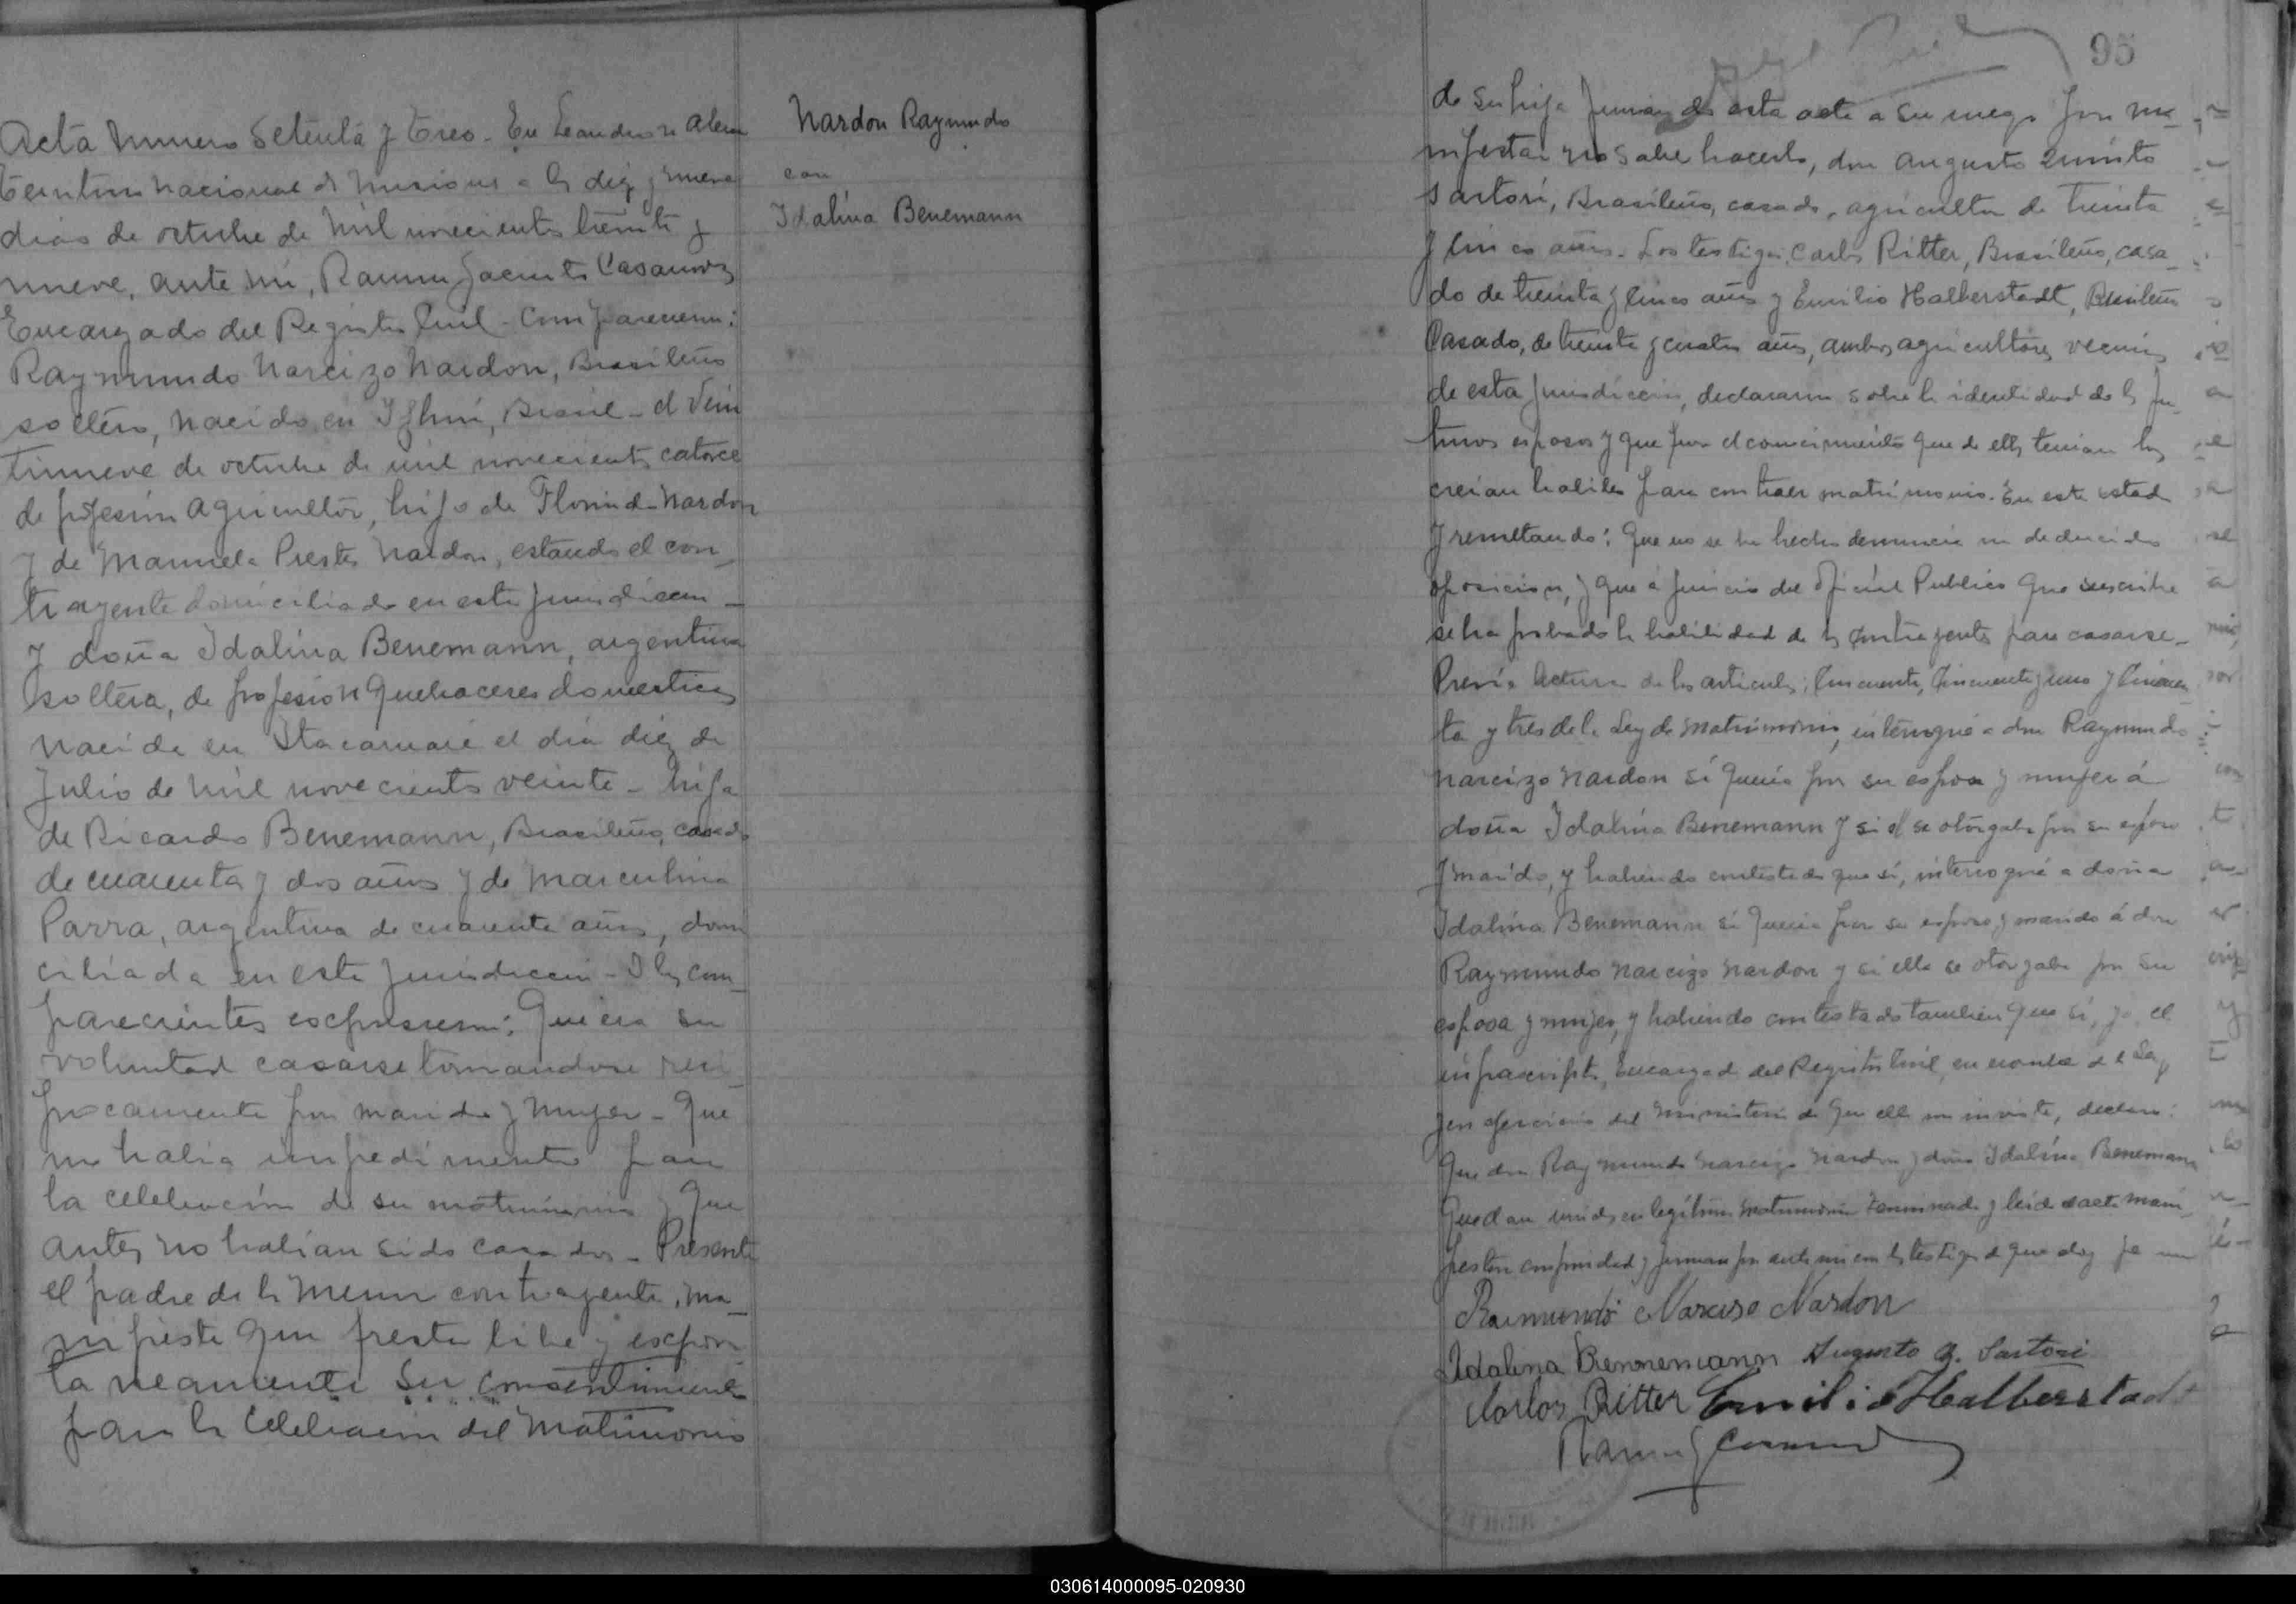 Acta Numero Setenta y Tres. En Leandro N Alem
Territorio Nacional de Misiones a los diez y nueve
dias de octubre de Mil novecientos treinta y
nueve, ante mi, Ramon Jacinto Casanova
Encargado del Registro Civil - Comparecieron:
Raymundo Narcizo Nardon, Brasileño
soltero, nacido en Ijhui, Brasil - el Vein
tinueve de octubre de mil novecientos catorce
de profesion Agricultor, hijo de Florindo Nardon
y de Manuela Prestes Nardon, estando el con_
trayente domiciliado en esta jurisdiccion _
y doña Idalina Benemann, argentina
soltera, de profesion Quehaceres domesticos
nacida en Itacaruaré el dia diez de
Julio de Mil novecientos veinte - hija
de Ricardo Benemann, Brasileño, casado
de cuarenta y dos años y de Marculina
Parra, argentina de cuarenta años, domi
ciliada en esta jurisdiccion - I los com_
parecientes expresaron: Que era su
voluntad casarse tomandose reci
procamente por marido y Mujer - Que
no habia impedimento para
la celebración de su matrimonio y que
antes no habian sido casados - Presente
el padre de la Menor contrayente, ma_
nifiesta que presta libre y expon
taneamente su consentimiento
para la Celebracion del Matrimonio
Nardon Raymundo
con
Idalina Benemann
95
de su hija firmando esta acta a su ruego por ma_
nifestar no sabe hacerlo, don Augusto Quinto
Sartori, Brasileño, casado, agricultor de treinta
y cinco años. Los testigos, Carlos Ritter, Brasileño, casa_
do de treinta y cinco años y Emilio Halberstadt, Brasileño
Casado, de treinta y cuatro años, ambos agricultores, vecinos
de esta jurisdiccion, declararon sobre la identidad de los fu_
turos esposos y que por el conocimiento que de ellos tenian los
creian habiles para contraer matrimonio. En este estado
y resultando: Que no se ha hecho denuncia ni deducido
oposicion, y que á juicio del Oficial Publico que suscribe
se ha probado la habilidad de los contrayentes para casarse_
Previa lectura de los articulos, Cincuenta, Cincuenta y uno y Cincuen_
ta y tres de la Ley de Matrimonio, interrogué a don Raymundo
Narcizo Nardon si queria por su esposa y mujer á
doña Idalina Benemann y si el se otorgaba por su esposo
y marido, y habiendo contestado que sí, interrogué a doña
Idalina Benemann si queria por su esposo y marido á don
Raymundo Narcizo Nardon y si ella se otorgaba por su
esposa y mujer, y habiendo contestado tambien que sí, yo, el
infrascripto, Encargado del Registro Civil, en nombre de la Ley
y en ejercicio del ministerio de que ella me inviste, declaro:
Que don Raymundo Narcizo Nardon y doña Idalina Benemann
Quedan unidos en legítimo Matrimonio Terminada y leida el acta mani_
festaron conformidad y firman por ante mi con los testigos de que doy fe
Raimundo Narciso Nardon
Idalina Bennemann Augusto Q. Sartori
Carlos Ritter Emilio Halberstadt
030614000095-020930